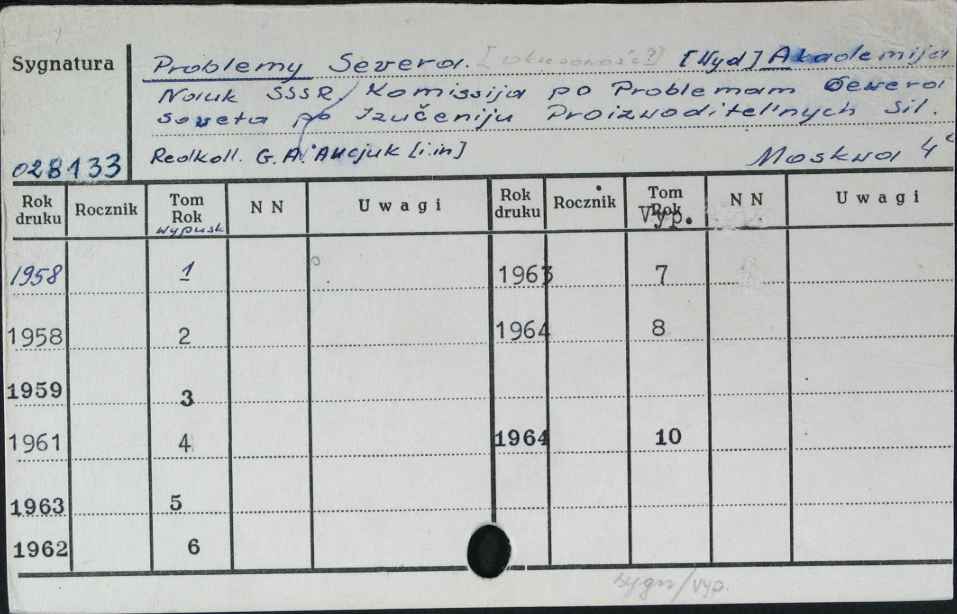 Sygnatura
Problemy Severa. [Wyd] Akademija
Nauk SSSR, Komissija po Problemam Severa
Soveta po Izučeniju Proizvoditel'nych Sil.
028133 Redkoll. G.A. [i.in] Moskva 4°
Rok druku Rocznik Tom Rok wypusk N N Uwagi Rok druku Rocznik Tom Rok Vyp. N N Uwagi
1958 1 1963 7
1958 2 1964 8
1959 3
1961 4 1964 10
1963 5
1962 6